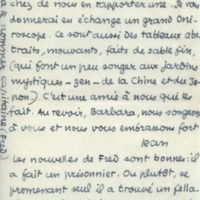 chez de nous en rapporter une. Je vous
donnerai en échange un grand Oni-
roscope. Ce sont aussi des tableaux abs-
traits, mouvants, faits de sable fin,
(qui font un peu songer aux jardins
mystiques - zen - de la Chine et du Ja-
pon). C'est une amie à nous qui les
fait. Au revoir, Barbara, nous songeons
à vous et nous embrassons fort
Jean
Les nouvelles de Fred sont bonnes: il
a fait un prisonnier. Ou plutôt, se
promenant seul il a trouvé un fella-